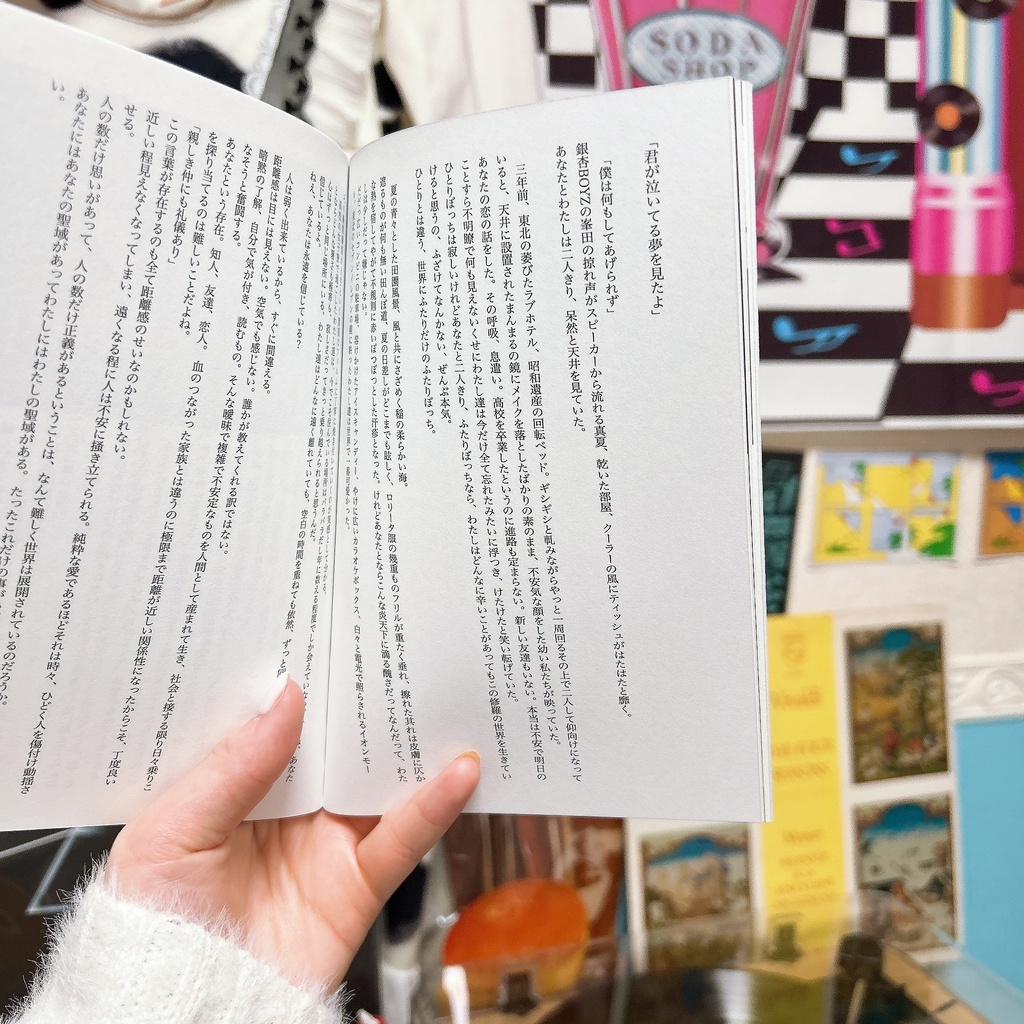 「君が泣いてる夢を見たよ」
「僕は何もしてあげられず」
銀杏BOYZの峯田の掠れ声がスピーカーから流れる真夏、乾いた部屋、クーラーの風にティッシュがはたはたと靡く。
あなたとわたしは二人きり、呆然と天井を見ていた。
三年前、東北の萎びたラブホテル、昭和遺産の回転ベッド。ギシギシと軋みながらやっと一周回るその上で二人して仰向けになって
いると、天井に設置されたまんまるの鏡にメイクを落としたばかりの素のまま、不安気な顔をした幼い私たちが映っていた。
あなたの恋の話をした。その呼吸、息遣い。高校を卒業したというのに進路も定まらない。新しい友達もいない。本当は不安で明日の
ことすら不明瞭で何も見えないくせにわたし達は今だけ全て忘れたみたいに浮つき、けたけたと笑い転げていた。
ひとりぼっちは寂しいけれどあなたと二人きり、ふたりぼっちなら、わたしはどんなに辛いことがあってもこの修羅の世界を生きてい
けると思うの、ふざけてなんかない、ぜんぶ本気。
ひとりとは違う、世界にふたりだけのふたりぼっち。
夏の青々とした田園風景、風と共にさざめく稲の柔らかい海。
遮るものが何も無い田んぼ道、夏の日差しがどこまでも眩しく、ロリータ服の幾重ものフリルが重たく垂れ、擦れた其れは皮膚に仄か
な熱を宿してやがて不規則に赤いぽつぽつとした汗疹となった。けれどあなたとならこんな炎天下に滴る醜さだってなんだって、わた
しは少しだって嫌じゃない。
溶けかけたアイスキャンディー、やけに広いカラオケボックス、白々と電光で照らされるイオンモー
ねえ、あなたは永遠を信じている?
人は弱く出来ているから、すぐに間違える。
距離感は目には見えない。空気でも感じない。誰かが教えてくれる訳ではない。
暗黙の了解、自分で気が付き、読むもの。そんな曖昧で複雑で不安定なものを人間として産まれて生き、社会と接する限り日々乗りこ
なそうと奮闘する。
あなたという存在。知人、友達、恋人。血のつながった家族とは違うのに極限まで距離が近しい関係性になったからこそ、丁度良い
を探り当てるのは難しいことだよね。
「親しき仲にも礼儀あり」
この言葉が存在するのも全て距離感のせいなのかもしれない。
近しい程見えなくなってしまい、遠くなる程に人は不安に掻き立てられる。純粋な愛であるほどそれは時々、ひどく人を傷付け動揺さ
せる。
人の数だけ思いがあって、人の数だけ正義があるということは、なんて難しく世界は展開されているのだろうか。
あなたにはあなたの聖域があってわたしにはわたしの聖域がある。たったこれだけの事が
い。
SODA
SHOP